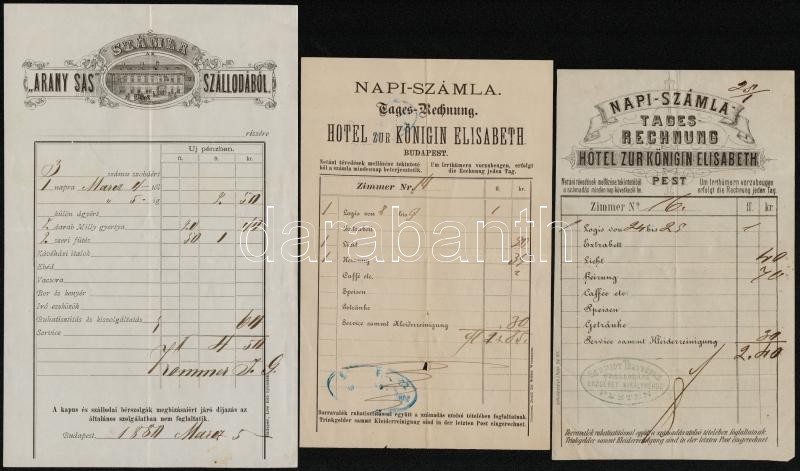 SZÁMLA
AZ
„ARANY SAS” SZÁLLODÁBÓL.
részére
Uj pénzben.
ft. ft. kr.
3 számu szobáért
1 napra Marcz 4 től
" 5 ig 2 50
külön ágyért
2 darab Milly gyertya 20
2 szeri fütés 50 1
Kávéházi italok
Ebéd
Vacsora
Bor és kenyér
Ivó eszközök
Ruhatisztitás és kiszolgáltatás
Service
4 50
A kapus és szállodai bérszolgák megbizásaiért járó díjazás az
általános szolgálatban nem foglaltatik.
Budapest, 1880 Marcz 5
NAPI-SZÁMLA.
Tages-Rechnung.
HOTEL ZUR KÖNIGIN ELISABETH
BUDAPEST.
Netáni tévedések mellőzése tekintetéből a számla mindennap beterjesztetik.
Um Irrthümern vorzubeugen, erfolgt die Rechnung jeden Tag.
Zimmer Nr. 14 fl. kr.
1 Logis von 8 bis 9 1
Extrabett
1 Licht 20
1 Heizung 35
Caffé etc.
Speisen
Getränke
Service sammt Kleiderreinigung 30
1.85
Borravalók ruhatisztitással együtt a számadás utolsó tételében foglaltatnak.
Trinkgelder sammt Kleiderreinigung sind in der letzten Post eingerechnet
25/1
NAPI-SZÁMLA
TAGES
RECHNUNG
HÔTEL ZUR KÖNIGIN ELISABETH
PEST
Netáni tévedések mellőzése tekintetéből a számadás minden nap következik be.
Um Irrthümern vorzubeugen erfolgt die Rechnung jeden Tag.
Zimmer No 16. fl. kr.
1 Logis von 24 bis 25 1
Extrabett
Licht 40
Heizung 70
Caffée etc.
Speisen
Getränke
Service sammt Kleiderreinigung 30
2.40
PESTEN
Borravalók ruhatisztitással együtt a számadás utolsó tételében foglaltatnak.
Trinkgelder sammt Kleiderreinigung sind in der letzten Post eingerechnet
darabanth